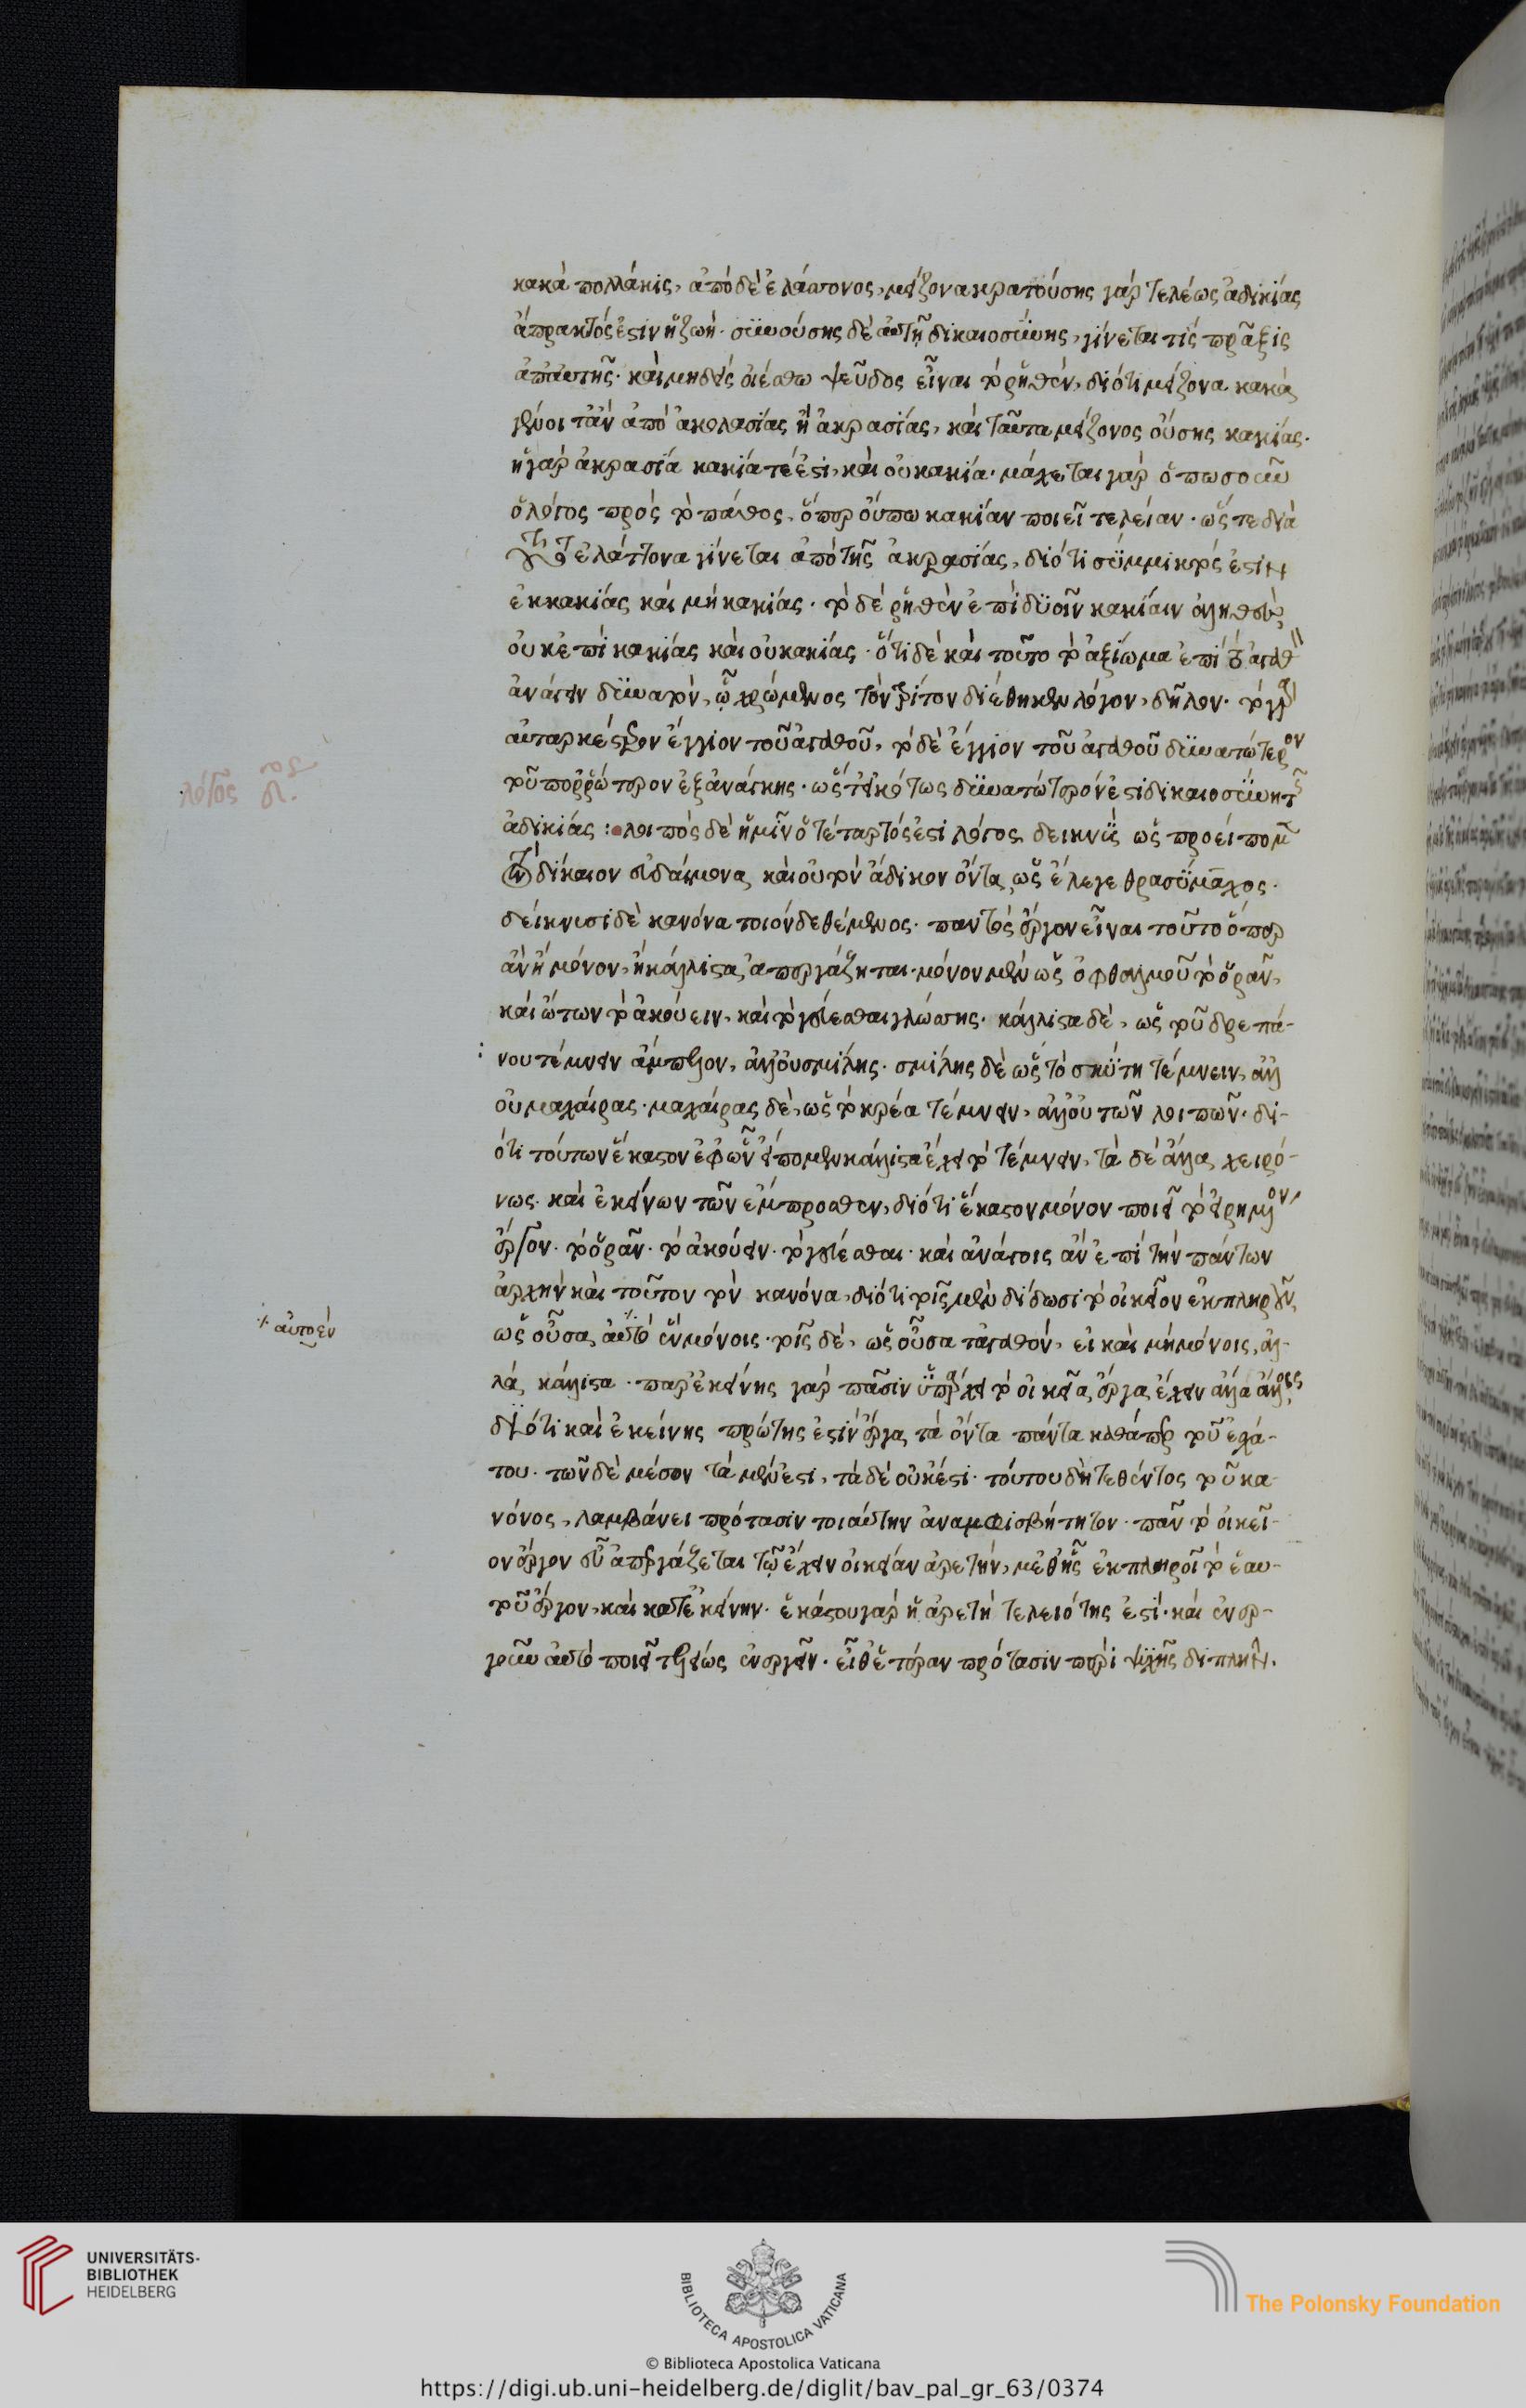 κακὰ πολλάκις, ἀπὸ δὲ ἐλάττονος, μείζονα κρατούσης γὰρ τελέως ἀδικίας
ἄπρακτός ἐστιν ἡ ζωή. συνούσης δὲ αὐτῇ δικαιοσύνης, γίνεταί τις πρᾶξις
ἀπ' αὐτῆς. καὶ μηδεὶς οἰέσθω ψεῦδος εἶναι τὸ ῥηθέν, διότι μείζονα κακὰ
γένοιτ' ἂν ἀπὸ ἀκολασίας ἢ ἀκρασίας, καὶ ταῦτα μείζονος οὔσης κακίας.
ἡ γὰρ ἀκρασία κακία τέ ἐστι, καὶ οὐ κακία. μάχεται γὰρ ὁπωσοῦν
ὁ λόγος πρὸς τὸ πάθος, ὅπερ οὔπω κακίαν ποιεῖ τελείαν. ὥστε διὰ
ταῦτα ἐλάττονα γίνεται ἀπὸ τῆς ἀκρασίας, διότι σύμμικρός ἐστιν
ἐκ κακίας καὶ μὴ κακίας. τὸ δὲ ῥηθὲν ἐπὶ δυοῖν κακίαιν ἀληθές,
οὐκ ἐπὶ κακίας καὶ οὐ κακίας. ὅτι δὲ καὶ τοῦτο τὸ ἀξίωμα ἐπὶ τἀγαθὸν
ἀνάγειν δυνατόν, ᾧ χρώμενος τὸν τρίτον διέθηκεν λόγον, δῆλον. τὸ γὰρ
αὐταρκέστερον ἔγγιον τοῦ ἀγαθοῦ, τὸ δὲ ἔγγιον τοῦ ἀγαθοῦ δυνατώτερον
τοῦ πορρώτερον ἐξ ἀνάγκης. ὥστ' εἰκότως δυνατώτερόν ἐστι δικαιοσύνη τῆς
ἀδικίας: λοιπὸς δὲ ἡμῖν ὁ τέταρτός ἐστι λόγος δεικνὺς ὡς προείπομεν
τὸν δίκαιον εὐδαίμονα, καὶ οὐ τὸν ἄδικον ὄντα, ὡς ἔλεγε θρασύμαχος.
δείκνυσι δὲ κανόνα τοιόνδε θέμενος. παντὸς ἔργον εἶναι τοῦτο ὅπερ
ἂν ἢ μόνον, ἢ κάλλιστα ἀπεργάζηται. μόνον μὲν ὡς ὀφθαλμοῦ τὸ ὁρᾶν,
καὶ ὤτων τὸ ἀκούειν, καὶ τὸ γεύεσθαι γλώσσης. κάλλιστα δὲ, ὡς τοῦ δρεπά-
νου τέμνειν ἄμπελον, ἀλλ' οὐ σμίλης. σμίλης δὲ ὡς τὸ σκύτη τέμνειν, ἀλλ'
οὐ μαχαίρας. μαχαίρας δὲ, ὡς τὸ κρέα τέμνειν, ἀλλ' οὐ τῶν λοιπῶν. δι-
ότι τούτων ἕκαστον ἐφ' ὧν εἴπομεν κάλλιστα ἔχει τὸ τέμνειν, τὰ δὲ ἄλλα, χειρό-
νως. καὶ ἐκείνων τῶν ἔμπροσθεν, διότι ἕκαστον μόνον ποιεῖ τὸ εἰρημένον
ἔργον. τὸ ὁρᾶν. τὸ ἀκούειν. τὸ γεύεσθαι. καὶ ἀνάγοις ἂν ἐπὶ τὴν πάντων
ἀρχὴν καὶ τοῦτον τὸν κανόνα, διότι τοῖς μὲν δίδωσι τὸ οἰκεῖον ἐκπληροῦν,
ὡς οὖσα, αὐτὸ ἓν μόνοις. τοῖς δὲ, ὡς οὖσα τἀγαθόν, εἰ καὶ μὴ μόνοις, ἀλ-
λὰ κάλλιστα. παρ' ἐκείνης γὰρ πᾶσιν ὑπάρχει τὸ οἰκεῖα ἔργα ἔχειν ἄλλα ἄλλοις
διότι καὶ ἐκείνης πρώτης ἐστὶν ἔργα τὰ ὄντα πάντα καθάπερ τοῦ ἐσχά-
του. τῶν δὲ μέσον τὰ μέν ἐστι, τὰ δὲ οὐκ ἔστι. τούτου δὴ τεθέντος τοῦ κα-
νόνος, λαμβάνει πρότασιν τοιαύτην ἀναμφισβήτητον. πᾶν τὸ οἰκεῖ-
ον ἔργον εὖ ἀπεργάζεται τῷ ἔχειν οἰκείαν ἀρετήν, μεθ' ἧς ἐκπληροῖ τὸ ἑαυ-
τοῦ ἔργον, καὶ κατ' ἐκείνην. ἑκάστου γὰρ ἡ ἀρετὴ τελειότης ἐστί. καὶ ἐνερ-
γοῦν αὐτὸ ποιεῖ τελείως ἐνεργεῖν. εἶθ' ἑτέραν πρότασιν περὶ ψυχῆς διπλῆν.
λόγος δ'.
αὐτοέν
UNIVERSITÄTS-
BIBLIOTHEK
HEIDELBERG
BIBLIOTECA APOSTOLICA VATICANA
The Polonsky Foundation
© Biblioteca Apostolica Vaticana
https://digi.ub.uni-heidelberg.de/diglit/bav_pal_gr_63/0374